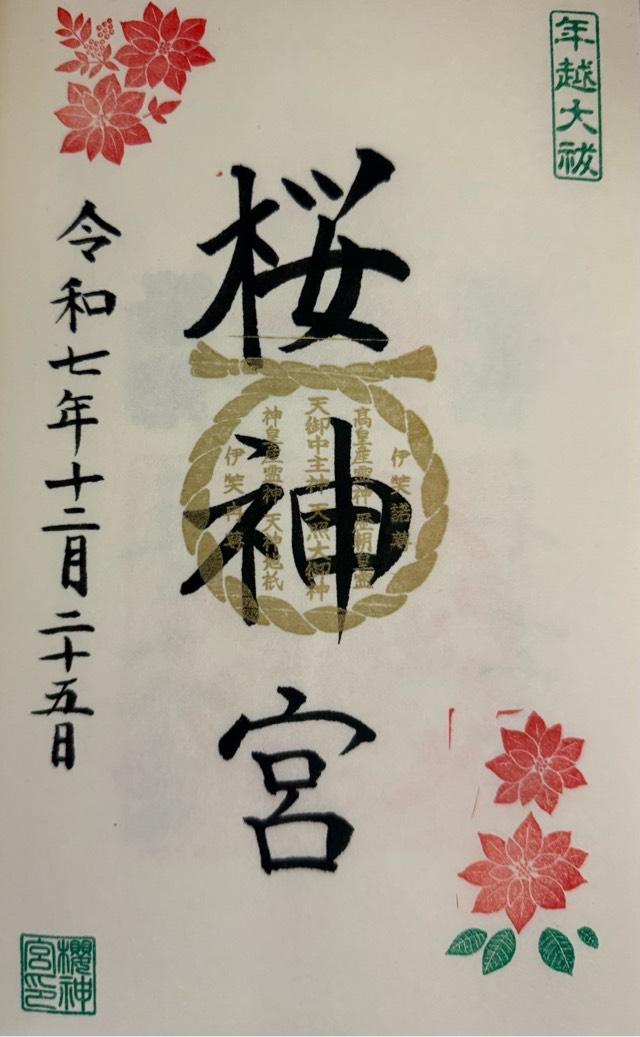 年越大祓
桜神宮
伊笑諾尊
高皇産霊神 歴朝皇霊
天御中主神 天照大御神
神皇産霊神 天神地祇
伊笑冉尊
令和七年十二月二十五日
櫻神
宮印